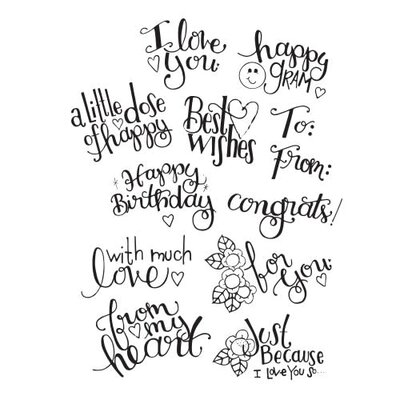 I love
you
happy
GRAM
a little dose
of happy
Best
wishes
To:
From:
Happy
Birthday
congrats!
with much
love
for
you
from
my
heart
Just
Because
I Love You So...